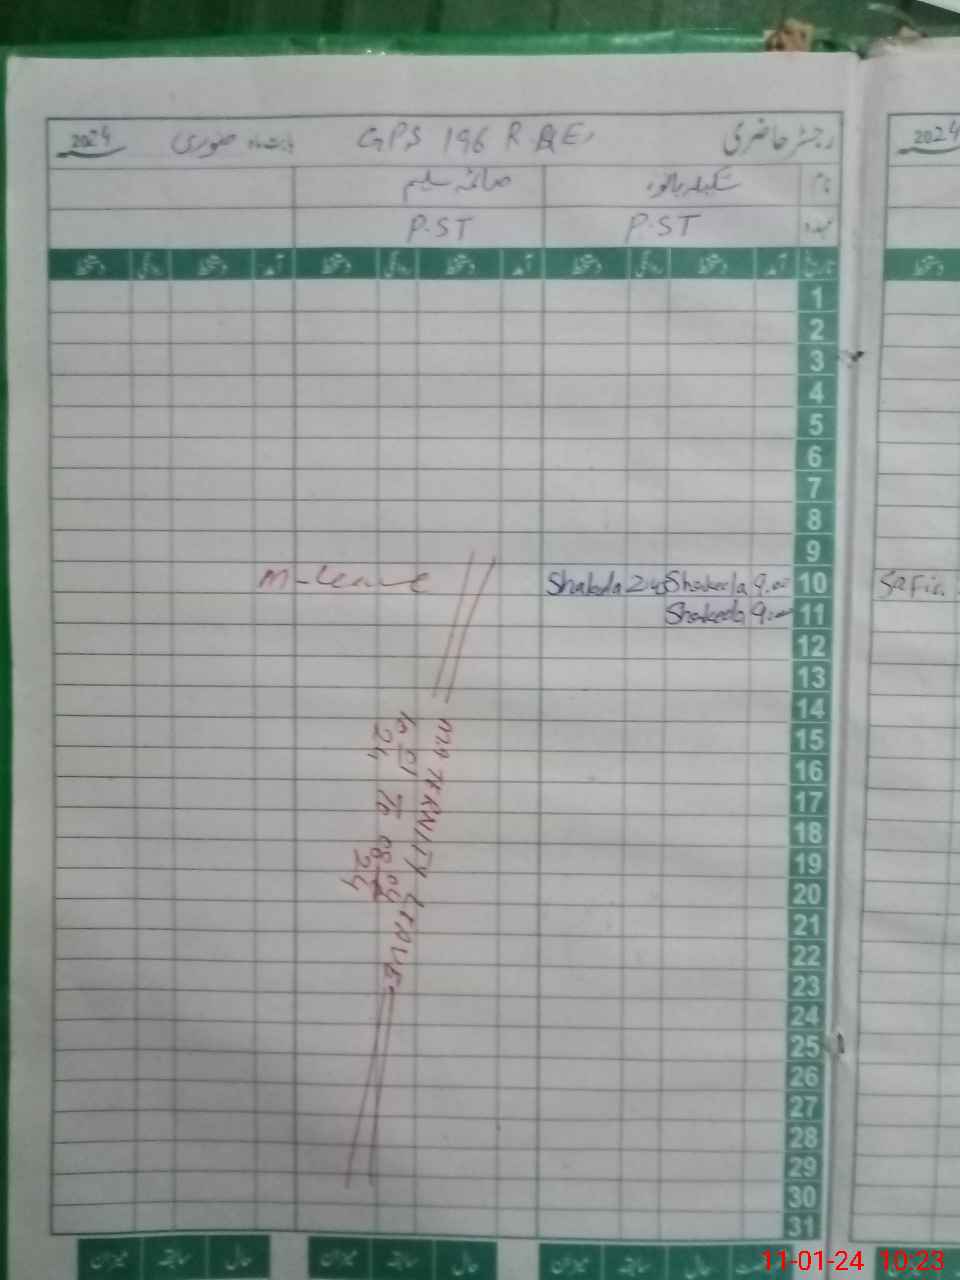 رجسٹر حاضری GPS 196 R.B بابت ماہ جنوری 2024
نام شکیلہ بانو صائمہ سلیم
عہدہ P.ST P.ST
تاریخ آمد دستخط روانگی دستخط آمد دستخط روانگی دستخط آمد دستخط روانگی دستخط
1
2
3
4
5
6
7
8
9
10 9.00 Shakeela 2:45 Shakeela M-Leave
11 9.00 Shakeela
12
13
14
15
16
17
18
19
20
21
22
23
24
25
26
27
28
29
30
31
MATERNITY LEAVE
10.01.24 To 08.04.24
حال سابقہ میزان حال سابقہ میزان حال سابقہ میزان
2024
دستخط
Safia
11-01-24 10:23